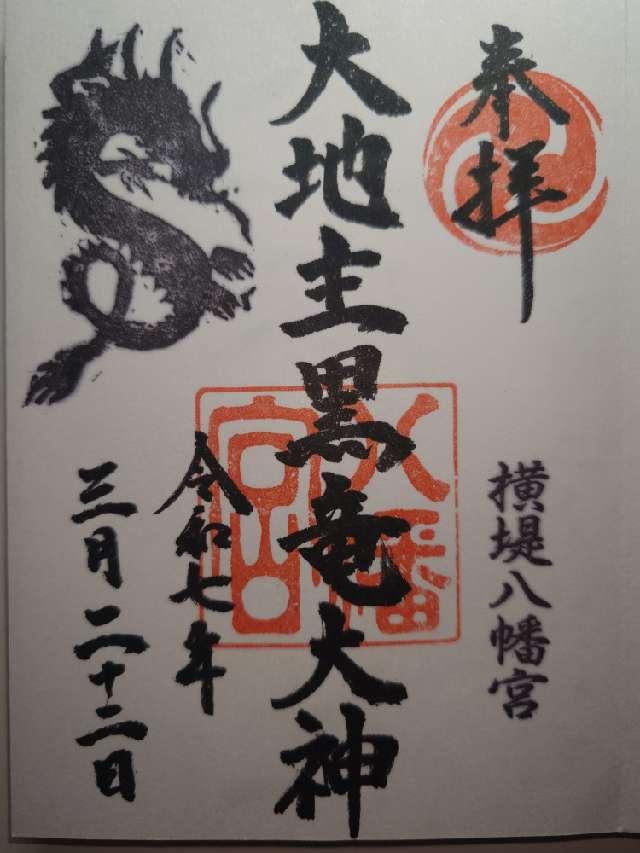 奉拝
横堤八幡宮
大地主黒竜大神
八幡宮
令和七年
三月二十二日